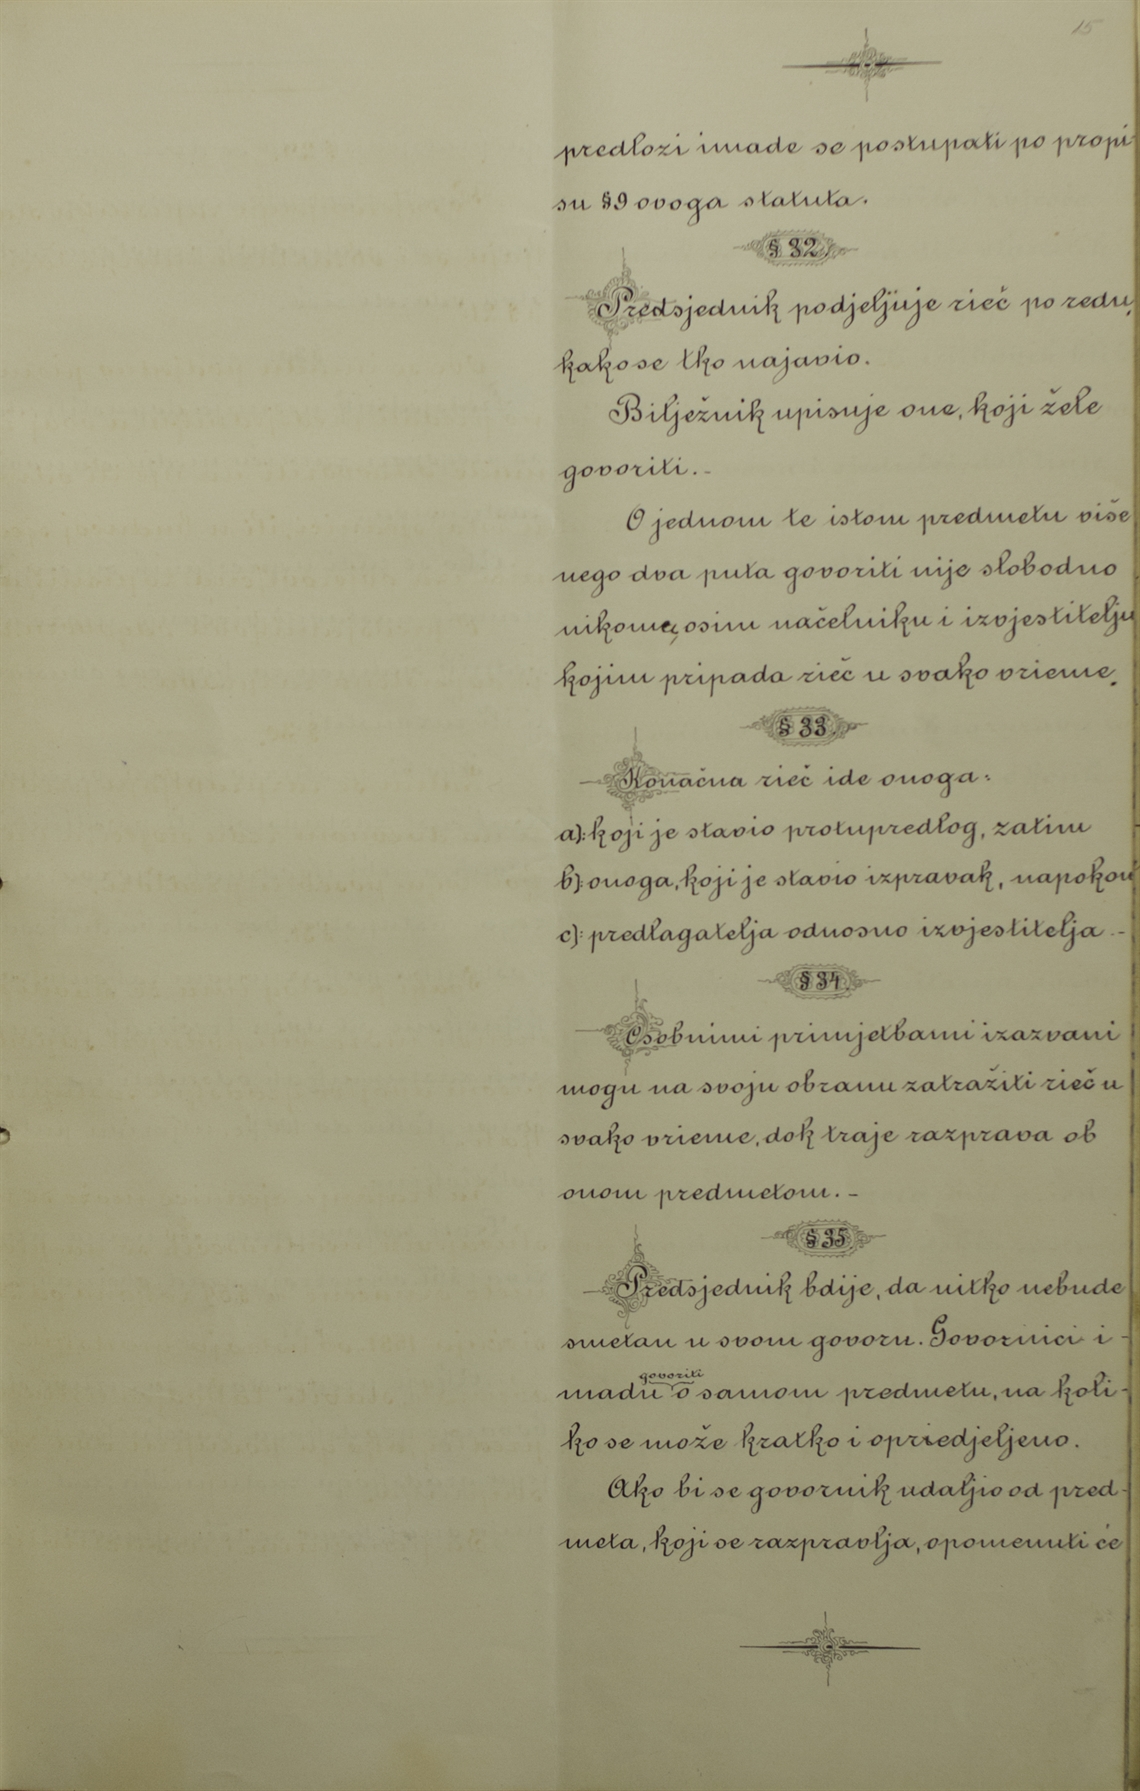 15
predlozi imade se postupati po propi-
su §9 ovoga statuta.
§ 32.
Predsjednik podjeljuje rieč po redu,
kako se tko najavio.
Bilježnik upisuje one, koji žele
govoriti.-
O jednom te istom predmetu više
nego dva puta govoriti nije slobodno
nikome, osim načelniku i izvjestitelju
kojim pripada rieč u svako vrieme.
§ 33.
Konačna rieč ide onoga:
a): koji je stavio protupredlog, zatim
b): onoga, koji je stavio izpravak, napokon
c): predlagatelja odnosno izvjestitelja.-
§ 34.
Osobnimi primjetbami izazvani
mogu na svoju obranu zatražiti rieč u
svako vrieme, dok traje razprava ob
onom predmetom.-
§ 35.
Predsjednik bdije, da nitko nebude
smetan u svom govoru. Govornici i-
govoriti
madu o samom predmetu, na koli-
ko se može kratko i opriedjeljeno.
Ako bi se govornik udaljio od pred-
meta, koji se razpravlja, opomenuti će